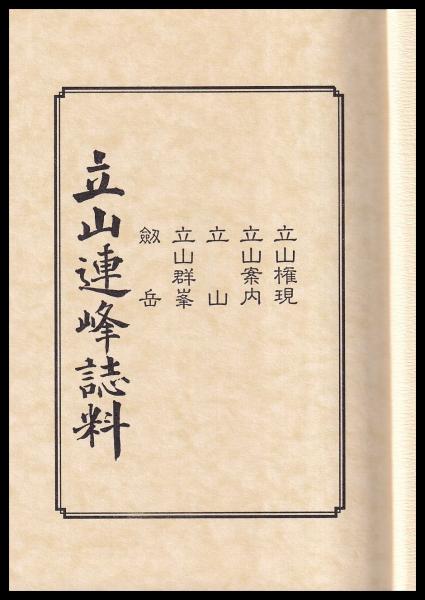 立山権現
立山案内
立山
立山群峯
劔岳
立山連峰誌料